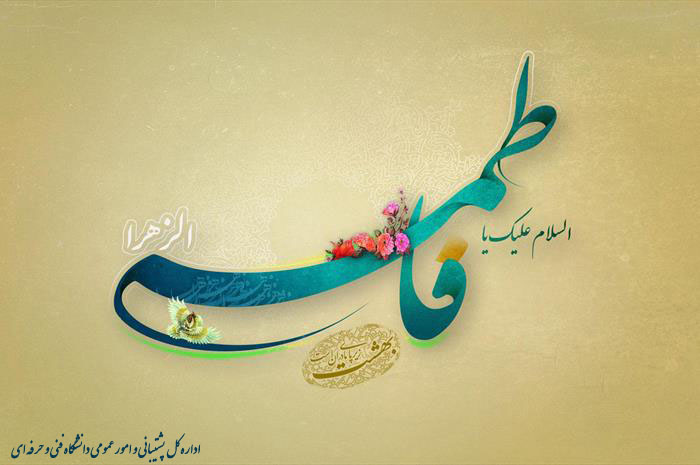 السلام علیک یا
فاطمه
الزهرا
بهشت زیر پای مادران است
اداره کل پشتیبانی و امور عمومی دانشگاه فنی و حرفه ای